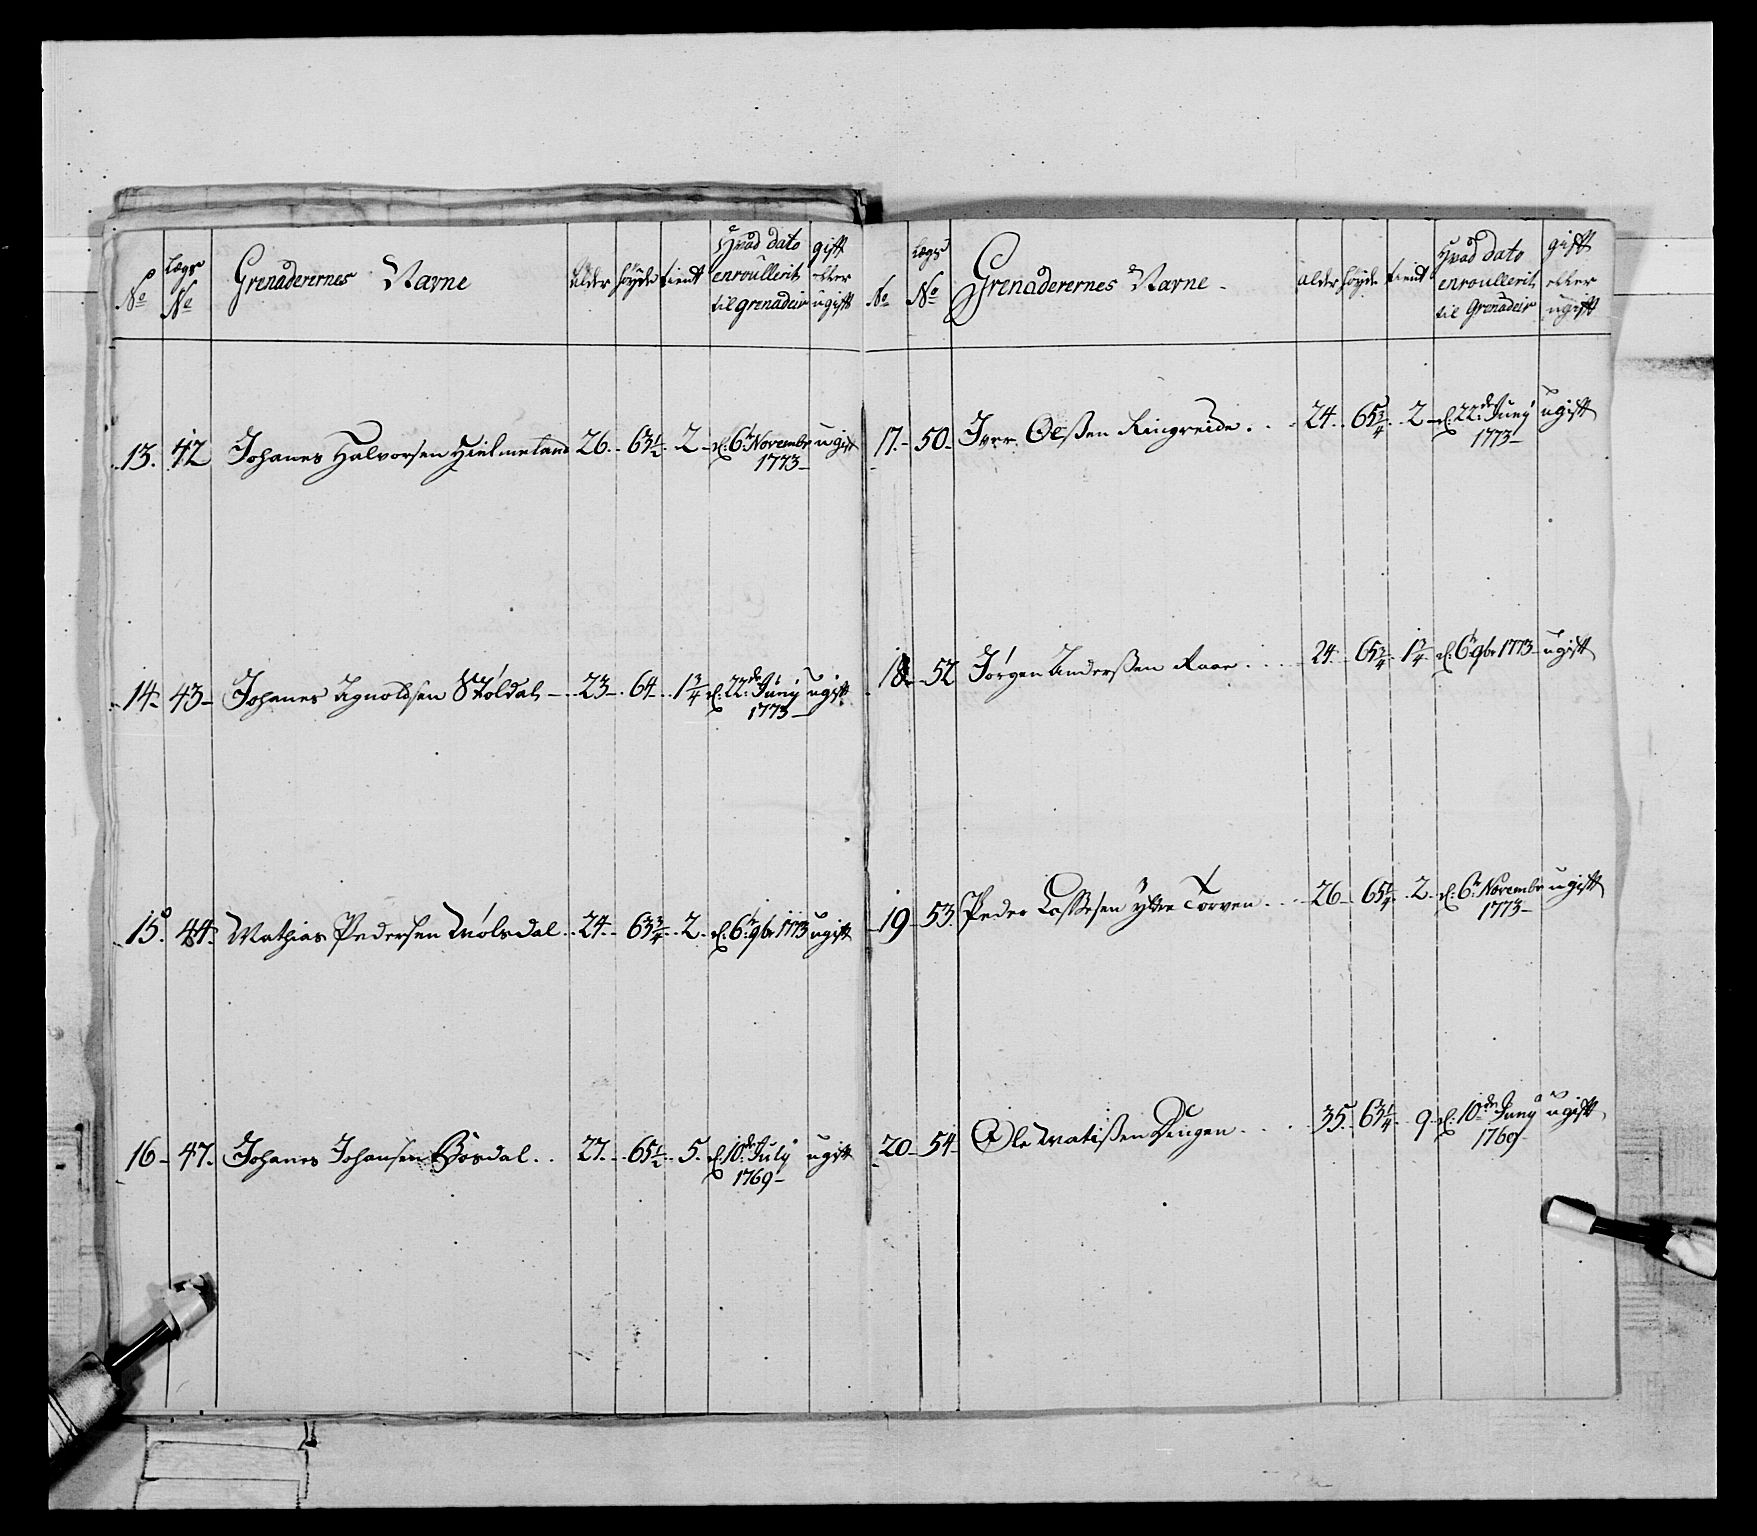 No Lægs No Grenaderernes Navne alder høyde tient Hvad dato enroullerit til grenadeir gift eller ugift
13. 42 Johanes Halvorsen Hielmeland 26. 63½ 2 d. 6t Novembr 1773 ugift
14 43 Johanes Ignoldsen Støldal 23 64 1¾ d. 22de Juny 1773 ugift
15. 44. Mathias Pedersen Mølsdal 24. 63¾ 2. d. 6t 9br 1773 ugift
16 47. Johanes Johansen Bøsdal 27. 65½ 5. d. 10de July 1769 ugift
No Lægs No Grenaderernes Navne alder høyde tient Hvad dato enroullerit til Grenadeir gift eller ugift
17. 50. Iver Olssen Ringreide 24. 65¾ 2 d. 22de Juny 1773 ugift
18 52 Jørgen Anderssen Raae 24. 65¾ 1¾ d. 6t 9br 1773 ugift
19 53. Peder Lassesen yttre Torven 26 65¼ 2. d. 6t Novembr 1773 ugift
20. 54 Ole Matissen 35. 63¼ 9 d. 10de Juny 1760 ugift